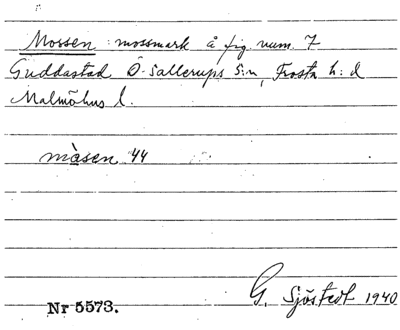 Mossen : mossmark å fig. num. 7
Guddastad Ö. Sallerups s:n, Frosta h:d
Malmöhus l.
måsen 44
G. Sjöstedt 1940
Nr 5573.